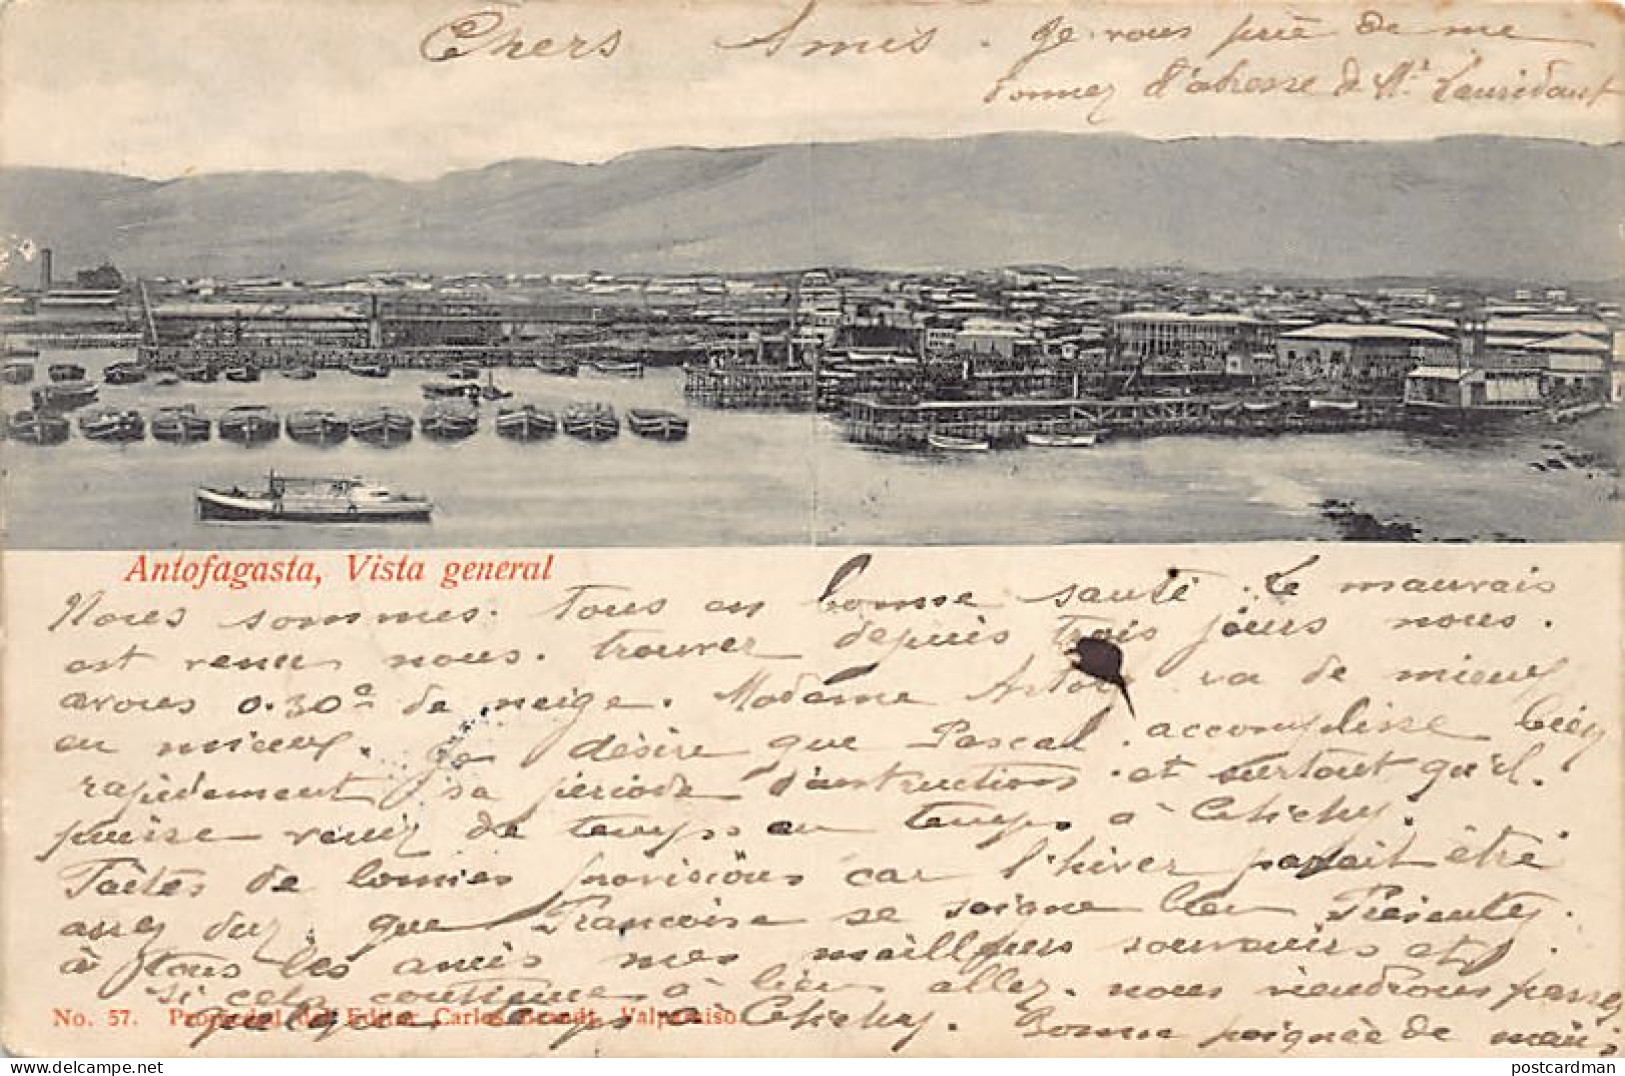 Chers Amis. Je vous prie de me
donnez l'adresse de Mr
Antofagasta, Vista general
Nous sommes. Tous en bonne santé. Le mauvais
est venu nous. trouver depuis trois jours nous.
avons 0.30c de neige. Madame va de mieux
en mieux. Je désire que Pascal. accomplisse bien
rapidement sa periode d'instructions. et surtout qu'il.
puisse venir de temps en temps à Clichy.
Faites de bonnes provisions car l'hiver parait être
assez dur que Francoise se soigne bien Presentez.
à tous les amis mes meilleurs souvenirs et
si cela continue à bien allez. nous viendrons passez
quelques temps Clichy. Bonne poignée de main
No. 57. Propiedad del Editor Carlos Brandt, Valparaiso
postcardman